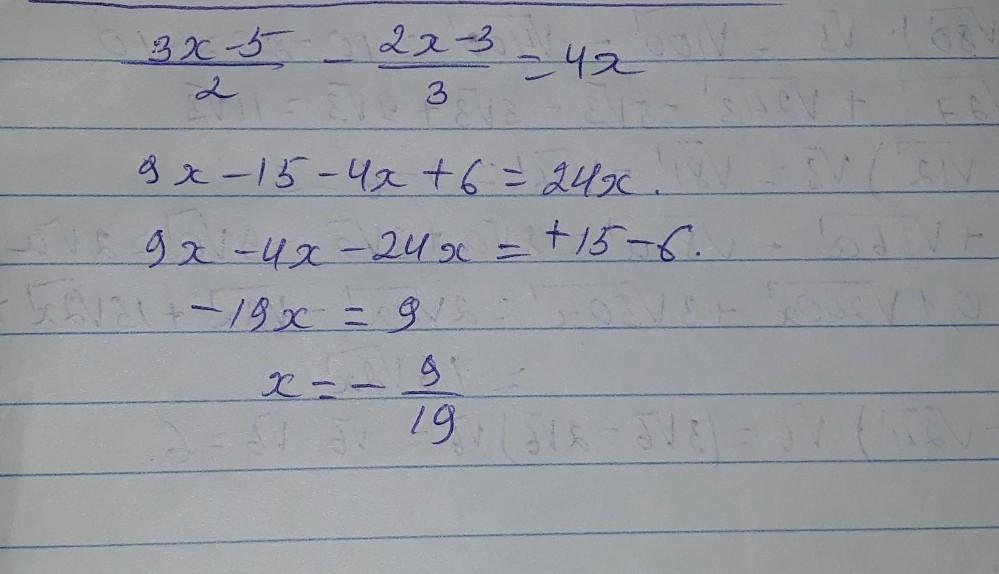 (3x-5)/2 - (2x-3)/3 = 4x
9x-15-4x+6=24x.
9x-4x-24x=+15-6.
-19x=9
x=-9/19